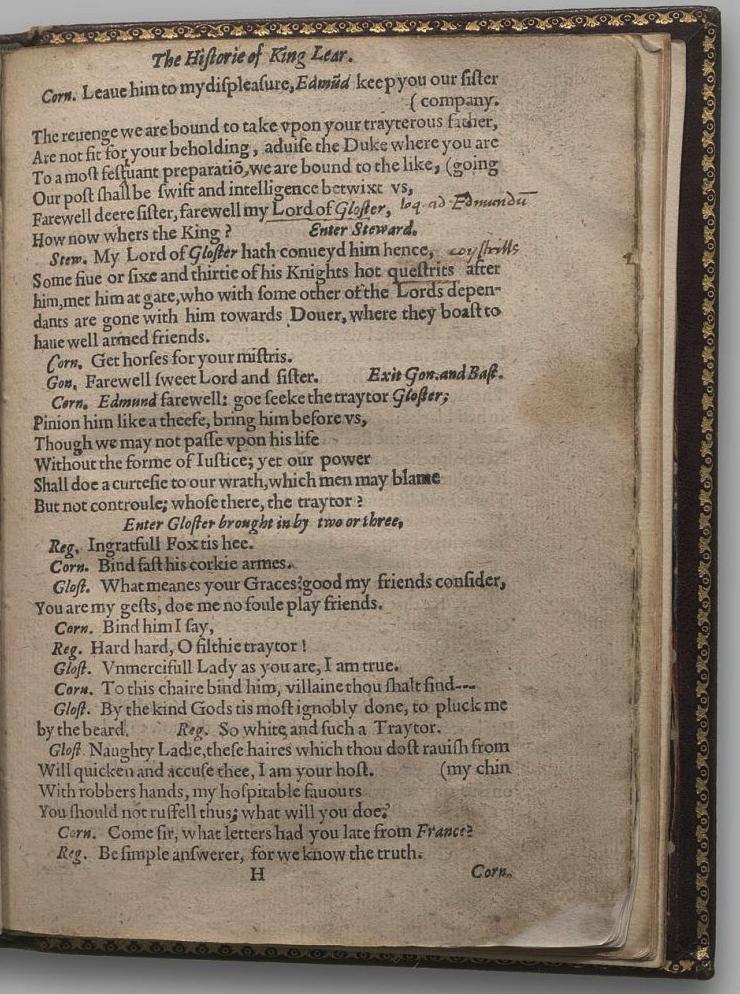 The Hiſtorie of King Lear.
Corn. Leaue him to my diſpleaſure, Edmūd keep you our ſiſter
( company.
The reuenge we are bound to take vpon your trayterous father,
Are not fit for your beholding, aduiſe the Duke where you are
To a moſt feſtuant preparatiō, we are bound to the like, (going
Our poſt ſhall be ſwift and intelligence betwixt vs,
Farewell deere ſiſter, farewell my Lord of Gloſter, loq. ad Edmundū
How now whers the King ? Enter Steward.
Stew. My Lord of Gloſter hath conueyd him hence,
Some fiue or ſixe and thirtie of his Knights hot queſtrits after
him, met him at gate, who with ſome other of the Lords depen-
dants are gone with him towards Douer, where they boaſt to
haue well armed friends.
Corn. Get horſes for your miſtris.
Gon. Farewell ſweet Lord and ſiſter. Exit Gon. and Baſt.
Corn. Edmund farewell: goe ſeeke the traytor Gloſter;
Pinion him like a theefe, bring him before vs,
Though we may not paſſe vpon his life
Without the forme of Iuſtice; yet our power
Shall doe a curteſie to our wrath, which men may blame
But not controule; whoſe there, the traytor ?
Enter Gloſter brought in by two or three,
Reg. Ingratfull Fox tis hee.
Corn. Bind faſt his corkie armes.
Gloſt. What meanes your Graces? good my friends conſider,
You are my geſts, doe me no foule play friends.
Corn. Bind him I ſay,
Reg. Hard hard, O filthie traytor !
Gloſt. Vnmercifull Lady as you are, I am true.
Corn. To this chaire bind him, villaine thou ſhalt find---
Gloſt. By the kind Gods tis moſt ignobly done, to pluck me
by the beard. Reg. So white, and ſuch a Traytor.
Gloſt Naughty Ladie, theſe haires which thou doſt rauiſh from
Will quicken and accuſe thee, I am your hoſt. (my chin
With robbers hands, my hoſpitable fauours
You ſhould not ruffell thus; what will you doe?
Corn. Come ſir, what letters had you late from France?
Reg. Be ſimple anſwerer, for we know the truth.
H Corn.